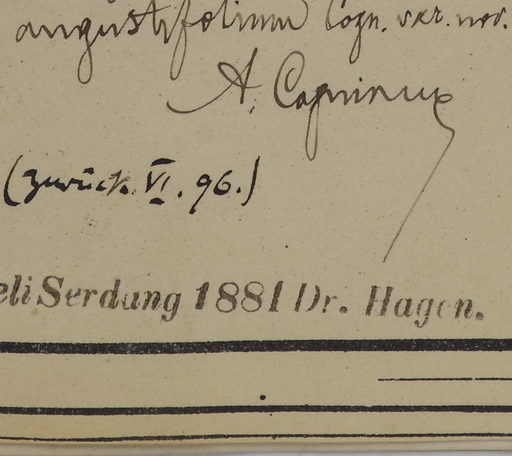 angustifolium Cogn. var. nov.
A. Cogniaux
(zurück VI. 96.)
eli Serdang 1881 Dr. Hagen.